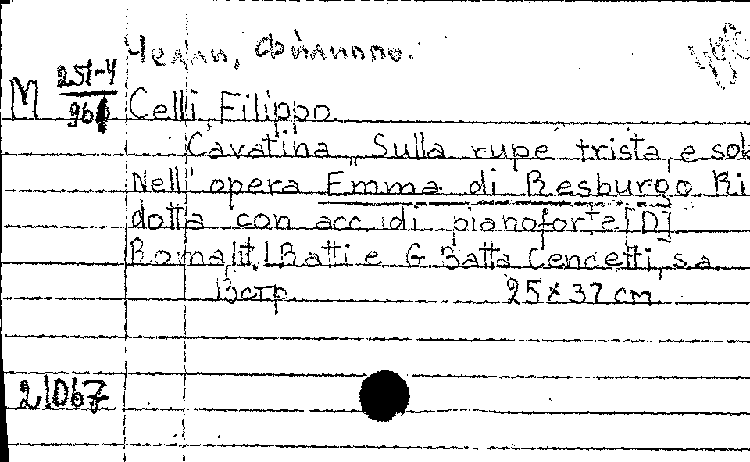 Челли, Филиппо.
М 251-4
Celli, Filippo
Cavatina „Sulla rupe trista, e sol
Nell' opera Emma di Resburgo Ri
dotta con acc di pianoforte [D]
Roma, lit. Ratti e G. Batta Cencetti, s.a.
13 стр. 25 x 37 см
21067